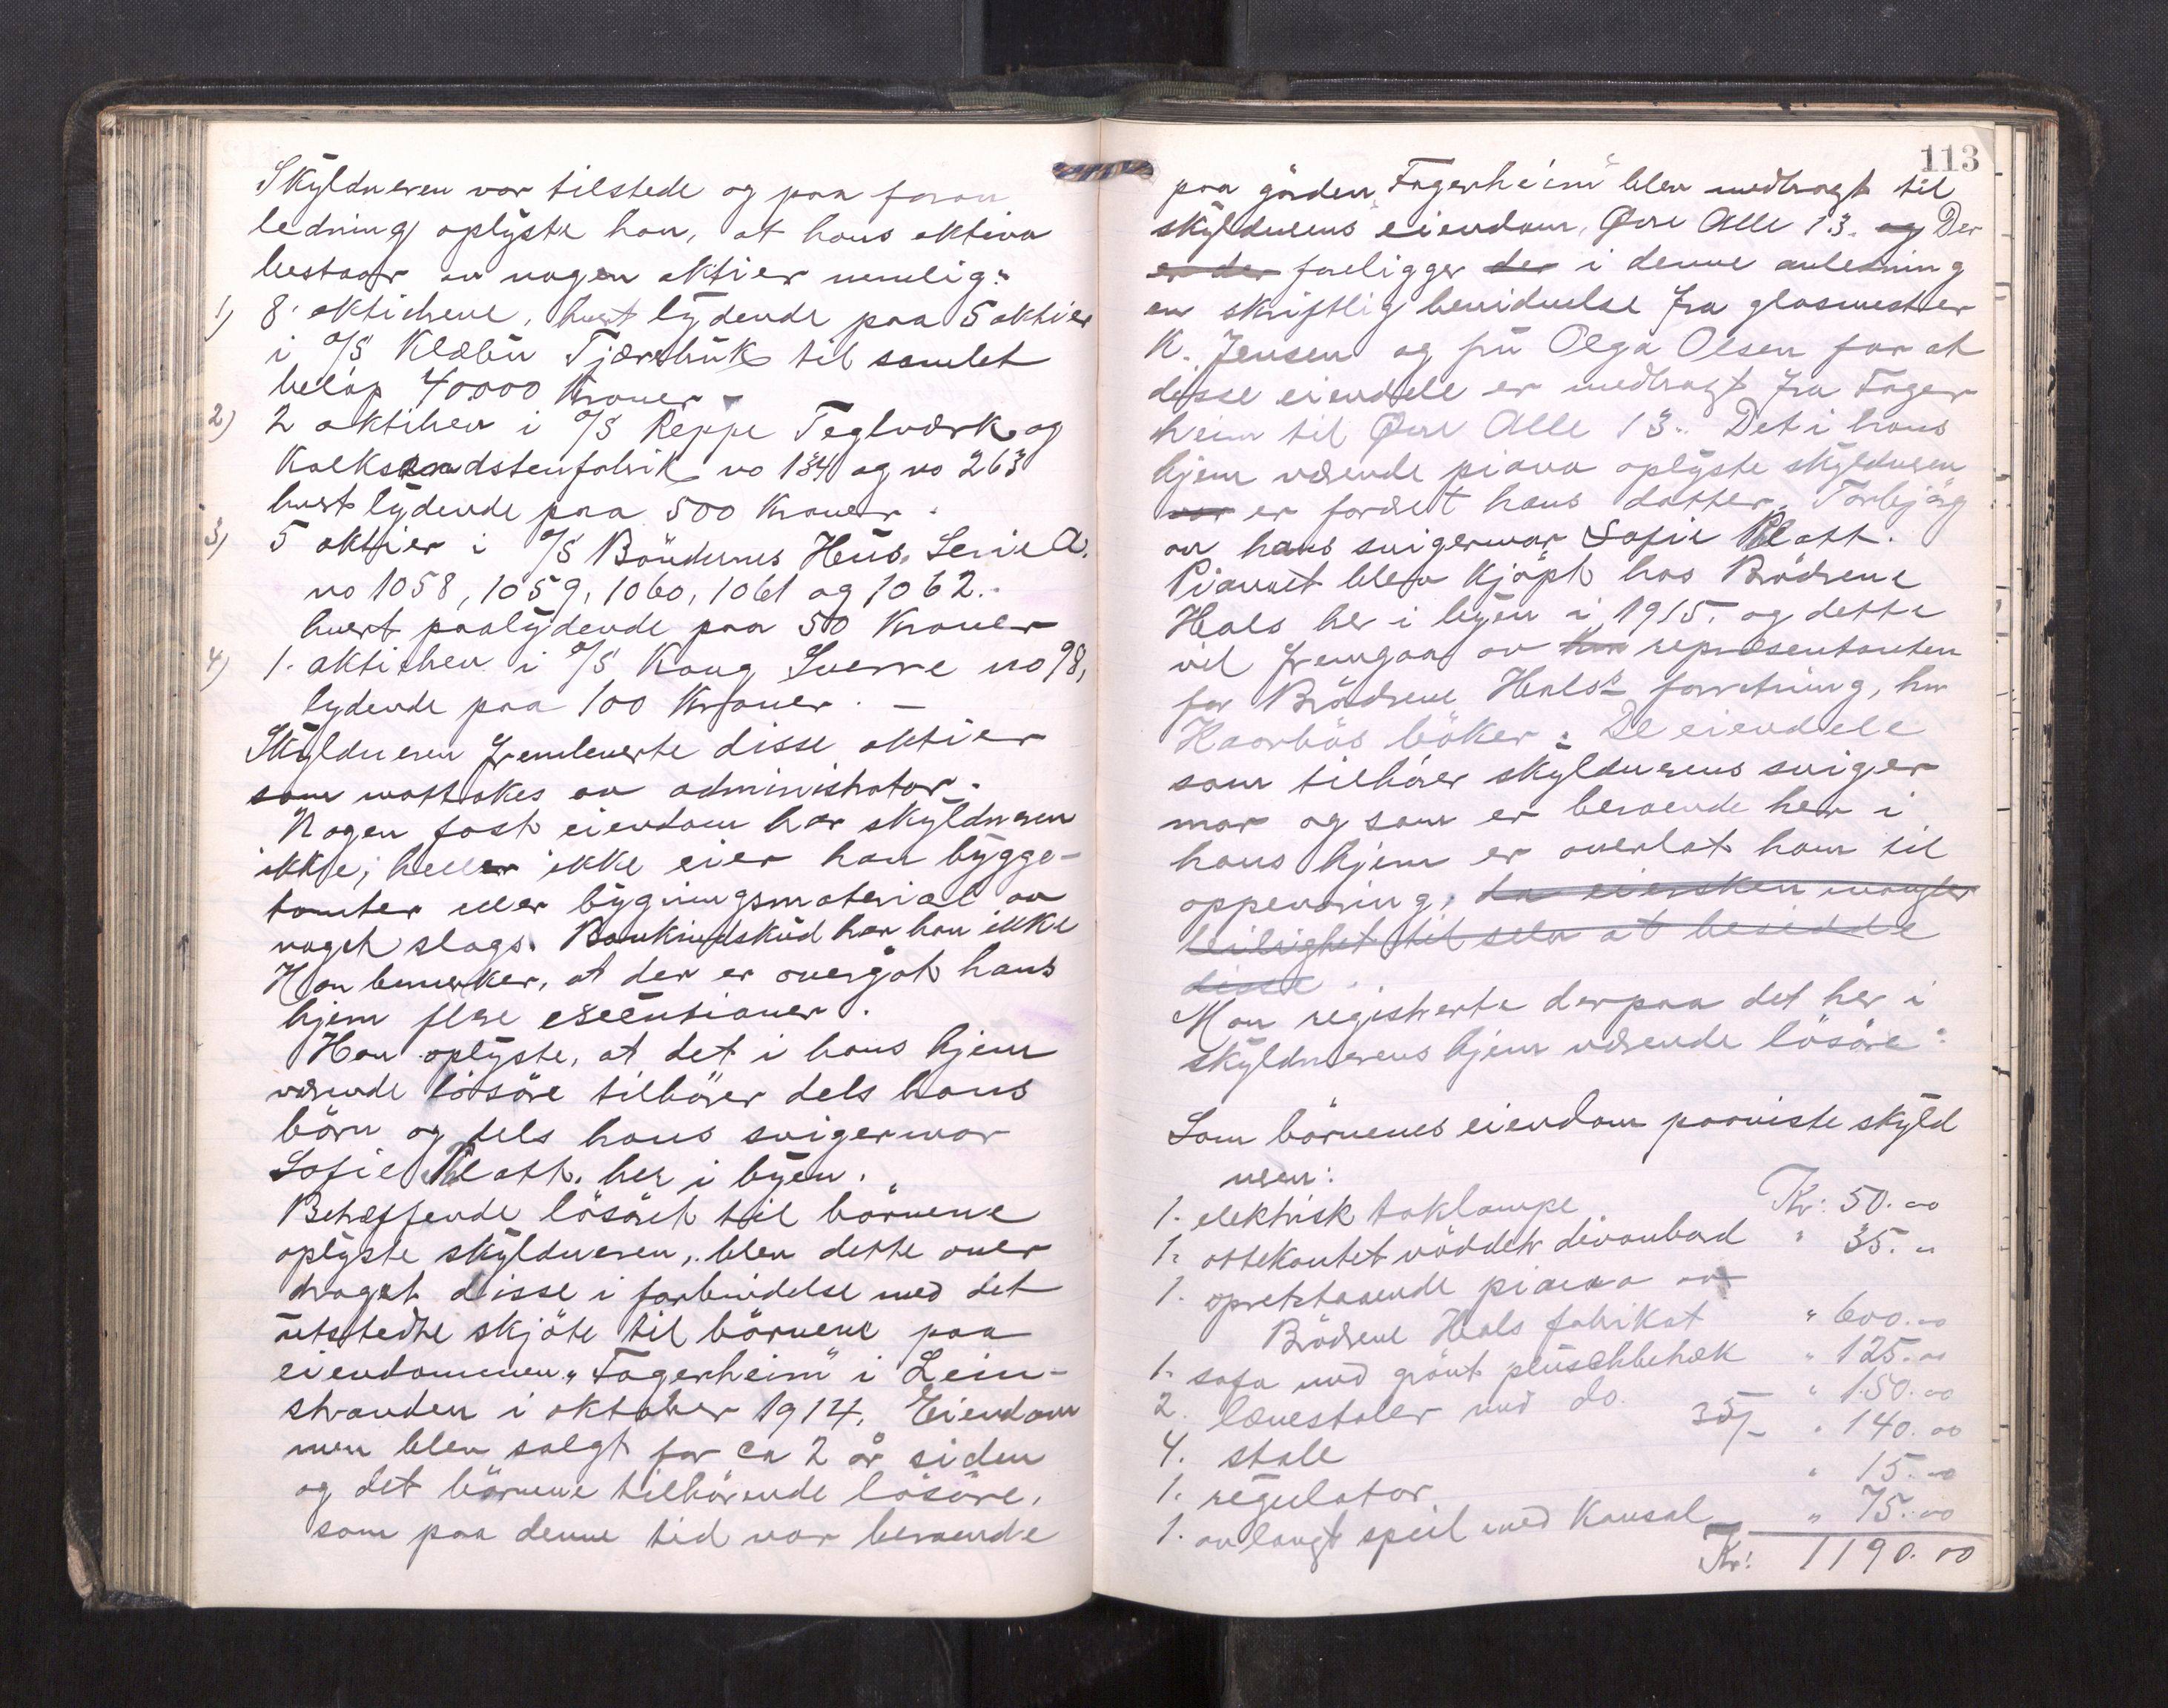 Skyldneren var tilstede og paa foran
ledning oplyste han, at hans aktiva
bestaar av nogen aktier nemlig:
1) 8 aktiebreve, hvert lydende paa 5 aktier
i A/S Klæbu Tjærebruk til samlet
beløp 40000 Kroner.
2) 2 aktiebrev i A/S Reppe Teglværk og
Kalksandstenfabrik no 134 og no 263
hvert lydende paa 500 Kroner.
3) 5 aktier i A/S Bøndernes Hus. Serie A.
no 1058, 1059, 1060, 1061 og 1062.
hvert paalydende paa 50 Kroner
4) 1. aktiebrev i A/S Kong Sverre no 98,
lydende paa 100 Kroner. —
Skyldneren fremleverte disse aktier
som mottokes av administrator.
Nogen fast eiendom har skyldneren
ikke; heller ikke eier han bygge-
tomter eller bygningsmaterial av
noget slags. Bankindskud har han ikke
Han bemerker, at der er overgåt hans
hjem flere executioner.
Han oplyste, at det i hans hjem
værende løsøre tilhører dels hans
børn og dels hans svigermor
Sofie Platt. her i byen.
Betræffende løsøret til børnene
oplyste skyldneren, blev dette over
draget disse i forbindelse med det
utstedte skjøte til børnene paa
eiendommen „Fagerheim" i Lein-
stranden i oktober 1914. Eiendom
men blev solgt for ca 2 år siden
og det børnene tilhørende løsøre,
som paa denne tid var beroende
113
paa gården „Fagerheim" blev medbragt til
skyldnerens eiendom, Øvre Alle 13. og Der
er der foreligger der i denne anledning
en skriftlig bevidnelse fra glasmester
K. Jensen og fru Olga Olsen for at
disse eiendele er medbragt fra Fager
heim til Øvre Alle 13. Det i hans
hjem værende piano oplyste skyldneren
var er foræret hans datter, Torbjørg
av hans svigermor Sofie Platt.
Pianoet blev kjøpt hos Brødrene
Hals her i byen i 1915. og dette
vil fremgaa av repræsentanten
for Brødrene Hals's forretning, hr
Haarbøs bøker. De eiendele
som tilhører skyldnerens sviger
mor og som er beroende her i
hans hjem er overlat ham til
oppevaring, da eiersken mangler
leilighet til selv at besidde
disse.
Man registrerte derpaa det her i
skyldnerens hjem værende løsøre:
Som børnenes eiendom paaviste skyld
neren:
1. elektrisk taklampe Kr: 50.00
1. ottekantet nøddetr divanbord " 35. "
1. opretstaaende piano av
Brødrene Hals fabrikat " 600.00
1. sofa med grønt pluschbetræk " 125.00
2. lænestoler med do. " 150.00
4. stole 35/- " 140.00
1. regulator " 15.00
1. avlangt speil med Konsol " 75.00
Kr: 1190.00